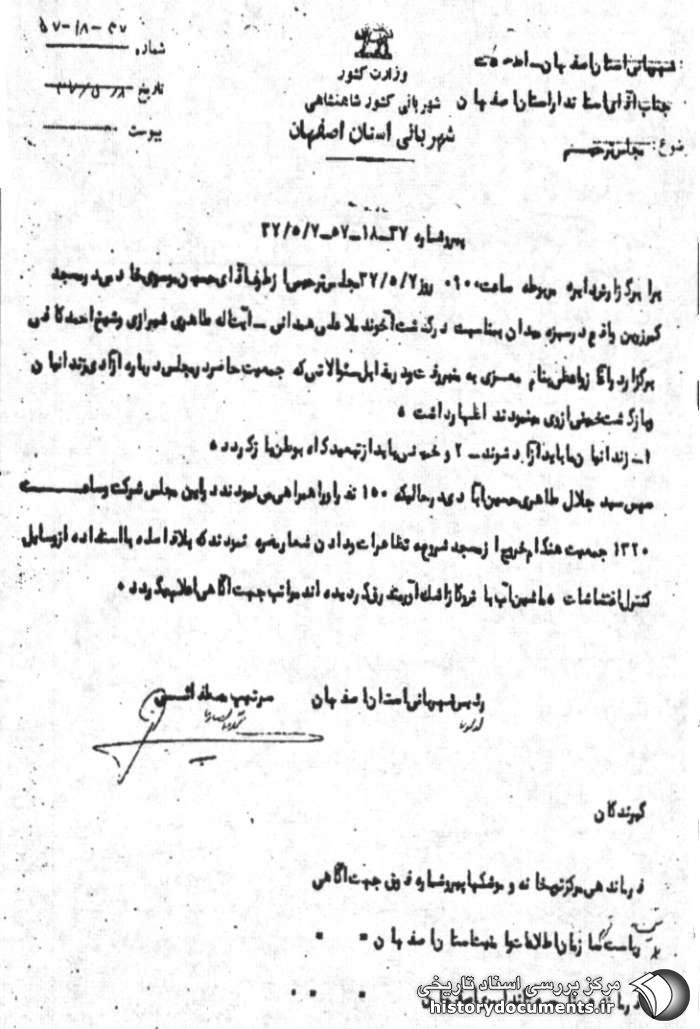 شماره ۳۷-۱۸-۵۷
تاریخ ۳۷/۵/۸
پیوست
وزارت کشور
شهربانی کشور شاهنشاهی
شهربانی استان اصفهان
جناب آقای استاندار استان اصفهان
موضوع: مجلس ترحیم
پیرو شماره ۳۷-۱۸-۵۷-۳۷/۵/۷
برابر گزارش دایره مربوطه ساعت ۰۹۰۰ روز ۳۷/۵/۷ مجلس ترحیمی از طرف آقای حسین موسوی خادمی در مسجد
واقع در سبزه میدان بمناسبت درگذشت آخوند ملا علی همدانی - آیت اله طاهری شیرازی و شیخ احمد کافی
برگزار واعظی بنام معزی به منبر رفت و در مقابل سئوالاتی که جمعیت حاضر در مجلس درباره آزادی زندانیان
و بازگشت خمینی از وی مینمودند اظهار داشت ۰
۱- زندانیان ما باید آزاد شوند - ۲ و خمینی باید از تبعیدگاه بوطن باز گردد ۰
سپس سید جلال طاهری حسین آبادی در حالیکه ۱۵۰ نفر او را همراهی می نمودند در این مجلس شرکت و ساعت
۱۳۲۰ جمعیت هنگام خروج از مسجد شروع به تظاهرات و دادن شعار مضره نمودند که بلافاصله با استفاده از وسایل
کنترل اغتشاشات ماشین آب پاش و گاز اشک آور متفرق گردیده اند مراتب جهت آگاهی اعلام میگردد ۰
رئیس شهربانی استان اصفهان سرتیپ
گیرندگان
فرماندهی مرکز توپخانه و موشکها پیرو شماره فوق جهت آگاهی
ریاست سازمان اطلاعات و امنیت استان اصفهان " "
مرکز بررسی اسناد تاریخی
historydocuments.ir